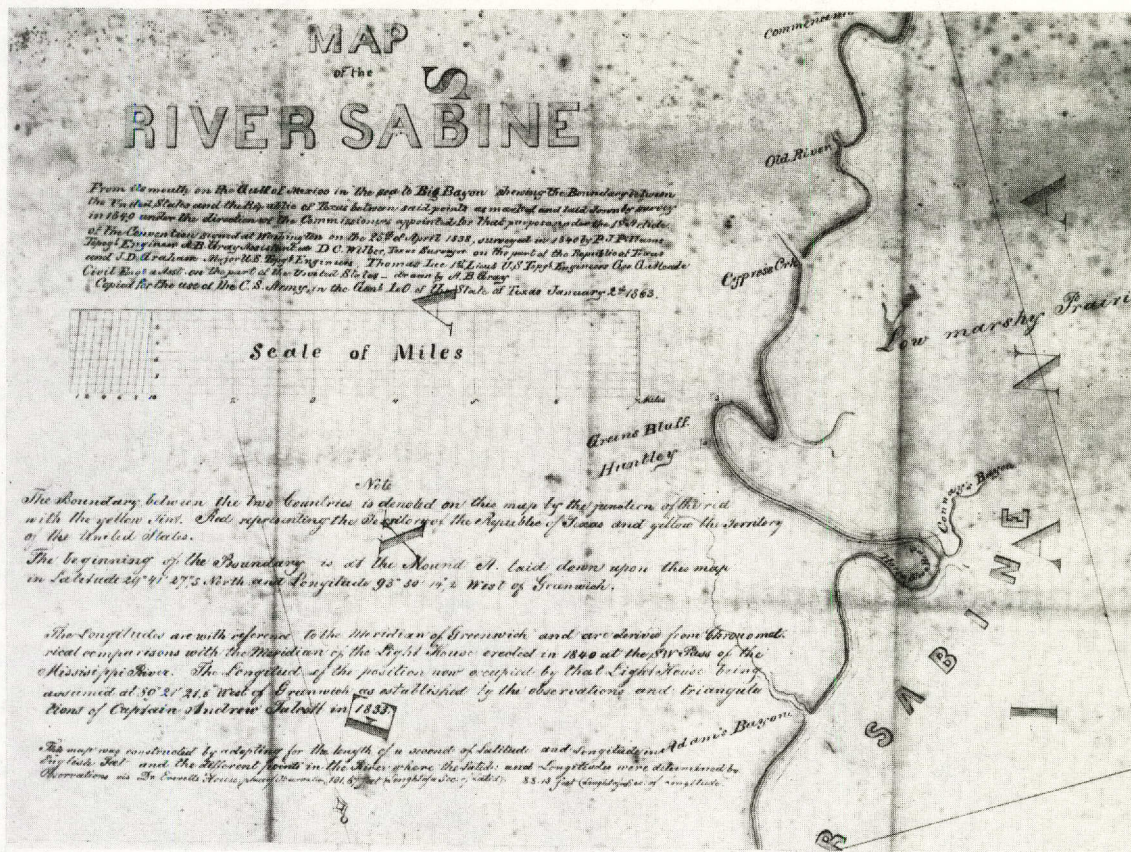 MAP
of the
RIVER SABINE
From its mouth on the Gulf of Mexico in the sea to Big Bayou shewing the Boundary between
the United States and the Republic of Texas between said points as marked and laid down by survey
in 1840 under the direction of the Commissioners appointed for that purpose under the 1st Article
of the Convention signed at Washington on the 25th of April 1838, surveyed in 1840 by P.J. Pillans
Topogl Engineer A.B. Gray Assistant D.C. Wilber, Texas Surveyor on the part of the Republic of Texas
and J.D. Graham Major U.S. Topl Engineers Thomas Lee 1st Lieut U.S. Topl Engineers Geo. G. Meade
Civil Engr & Asst. on the part of the United States _ drawn by A.B. Gray
Copied for the use of the C.S. Army, in the Genl L.O of the State of Texas January 2d 1863.
Scale of Miles
Miles
Note
The Boundary between the two Countries is denoted on this map by the junction of the red
with the yellow tint. Red representing the Territory of the Republic of Texas and yellow the Territory
of the United States.
The beginning of the Boundary is at the Mound A. laid down upon this map
in Latitude 29° 41' 27".5 North and Longitude 93° 50' 14".2 West of Greenwich.
The Longitudes are with reference to the Meridian of Greenwich and are derived from Chronomet-
rical comparisons with the Meridian of the Light House erected in 1840 at the S.W. Pass of the
Mississippi River. The Longitude of the position now occupied by that Light House being
assumed at 21' 21.5 West of Greenwich as established by the observations and triangula
tions of Captain Andrew Talcott in 1833.
This map was constructed by adopting for the length of a second of Latitude and Longitude in
English Feet and the different points in the River where the Latids and Longitudes were determined by
Observations
Old River
Cypress Crk
Low marshy Prairi
Greens Bluff
Huntley
Conway's Bayou
Adams Bayou
R SABINE
T E X A
I A N A